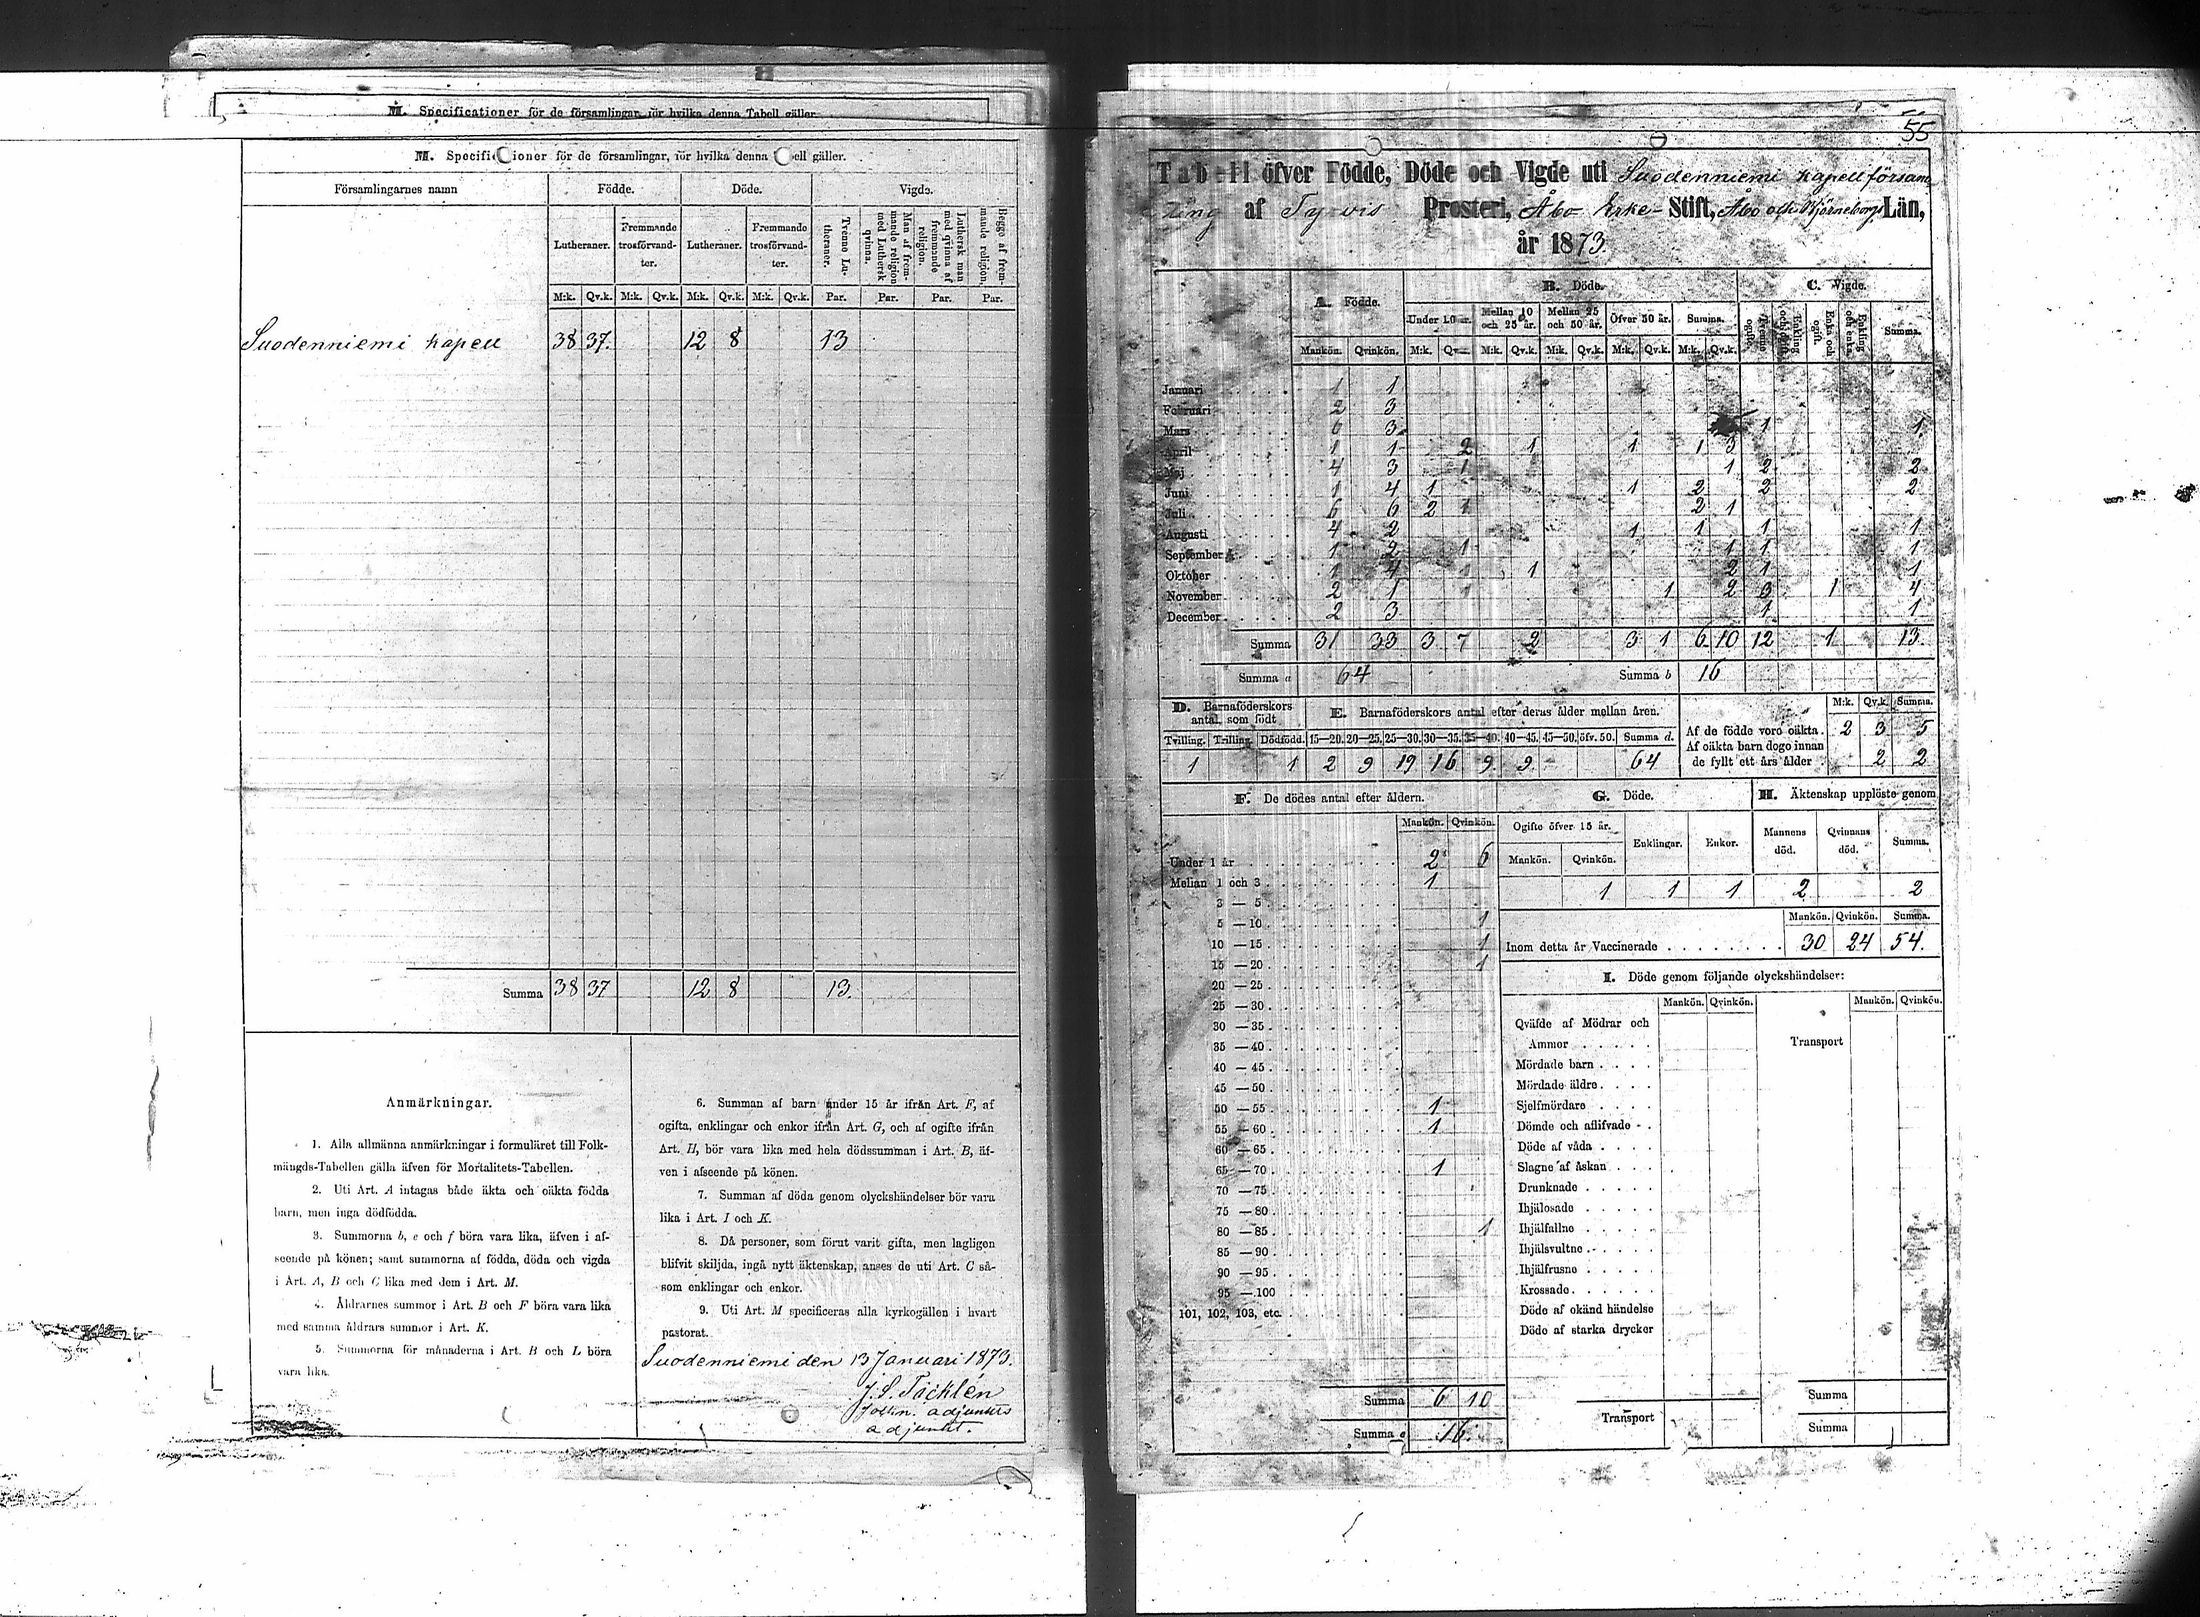 M. Specificationer för de församlingar, för hvilka denna Tabell gäller.
M. Specific ioner för de församlingar, för hvilka denna ell gäller.
Församlingarnes namn Födde. Döde. Vigde.
Lutheraner. Fremmande trosförvandter. Lutheraner. Fremmande trosförvandter. Tvenne Lutheraner. Man af fremmande religion med Luthersk qvinna. Luthersk man med qvinna af fremmande religion. Begge af fremmande religion.
M:k. Qv.k. M:k. Qv.k. M:k. Qv.k. M:k. Qv.k. Par. Par. Par. Par.
Suodenniemi kapell 38 37. 12 8 13
Summa 38 37 12 8 13.
Anmärkningar.
1. Alla allmänna anmärkningar i formuläret till Folk-
mängds-Tabellen gälla äfven för Mortalitets-Tabellen.
2. Uti Art. A intagas både äkta och oäkta födda
barn, men inga dödfödda.
3. Summorna b, e och f böra vara lika, äfven i af-
seende på könen; samt summorna af födda, döda och vigda
i Art. A, B och C lika med dem i Art. M.
4. Åldrarnes summor i Art. B och F böra vara lika
med samma åldrars summor i Art. K.
5. Summorna för månaderna i Art. B och L böra
vara lika.
6. Summan af barn under 15 år ifrån Art. F, af
ogifta, enklingar och enkor ifrån Art. G, och af ogifte ifrån
Art. H, bör vara lika med hela dödssumman i Art. B, äf-
ven i afseende på könen.
7. Summan af döda genom olyckshändelser bör vara
lika i Art. I och K.
8. Då personer, som förut varit gifta, men lagligen
blifvit skiljda, ingå nytt äktenskap, anses de uti Art. C så-
som enklingar och enkor.
9. Uti Art. M specificeras alla kyrkogällen i hvart
pastorat.
Suodenniemi den 13 Januari 1873.
J. S. Täcklén
adjunkts
adjunkt.
55
Tabell öfver Födde, Döde och Vigde uti Suodenniemi kapellförsam
ling af Tyrvis Prosteri, Åbo Erke- Stift, Åbo och Björneborgs Län,
år 1873.
A. Födde. B. Döde. C. Vigde.
Under 10 år. Mellan 10 och 25 år. Mellan 25 och 50 år. Öfver 50 år. Summa. Tvenne ogifte. Enkling och ogift. Enka och ogift. Enkling och enka. Summa.
Mankön. Qvinkön. M:k. Qv.k. M:k. Qv.k. M:k. Qv.k. M:k. Qv.k. M:k. Qv.k.
Januari 1 1
Februari 2 3
Mars 6 3 1 1
April 1 1 2 1 1 1 3
Maj 4 3 1 1 2 2
Juni 1 4 1 1 2 2 2
Juli 6 6 2 1 2 1
Augusti 4 2 1 1 1 1
September 1 2 1 1 1 1
Oktober 1 4 1 1 2 1 1
November 2 1 1 2 3 1 4
December 2 3 1 1
Summa 31 33 3 7 2 3 1 6 10 12 1 13
Summa a 64 Summa b 16
D. Barnaföderskors antal, som födt
Tvilling. Trilling. Dödfödd.
1 1
E. Barnaföderskors antal efter deras ålder mellan åren.
15—20. 20—25. 25—30. 30—35. 35—40. 40—45. 45—50. öfv. 50. Summa d.
2 9 19 16 9 9 64
M:k. Qv.k. Summa.
Af de födde voro oäkta 2 3 5
Af oäkta barn dogo innan
de fyllt ett års ålder 2 2
F. De dödes antal efter åldern.
Mankön. Qvinkön.
Under 1 år 2 6
Mellan 1 och 3 1
3 — 5
5 — 10 1
10 — 15 1
15 — 20 1
20 — 25
25 — 30
30 — 35
35 — 40
40 — 45
45 — 50
50 — 55 1
55 — 60 1
60 — 65
65 — 70 1
70 — 75
75 — 80
80 — 85 1
85 — 90
90 — 95
95 — 100
101, 102, 103, etc.
Summa 6 10
Summa e 16.
G. Döde.
Ogifte öfver 15 år. Enklingar. Enkor.
Mankön. Qvinkön.
1 1 1
H. Äktenskap upplöste genom
Mannens död. Qvinnans död. Summa.
2 2
Mankön. Qvinkön. Summa.
Inom detta år Vaccinerade 30 24 54.
I. Döde genom följande olyckshändelser:
Mankön. Qvinkön. Mankön. Qvinkön.
Qväfde af Mödrar och
Ammor Transport
Mördade barn
Mördade äldre
Sjelfmördare
Dömde och aflifvade
Döde af våda
Slagne af åskan
Drunknade
Ihjälosade
Ihjälfallne
Ihjälsvultne
Ihjälfrusne
Krossade
Döde af okänd händelse
Döde af starka drycker
Summa
Transport Summa